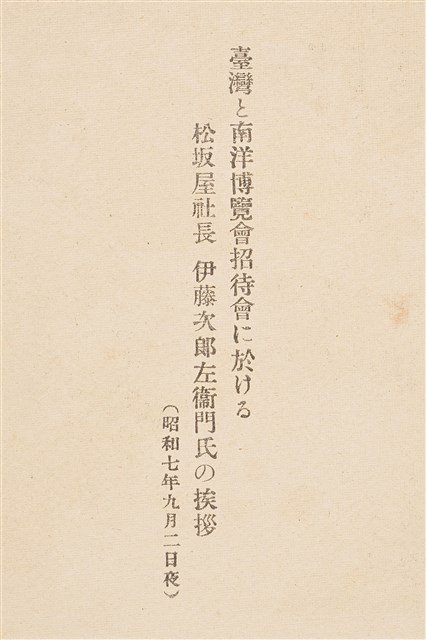 臺灣と南洋博覽會招待會に於ける
松坂屋社長 伊藤次郎左衞門氏の挨拶
(昭和七年九月二日夜)